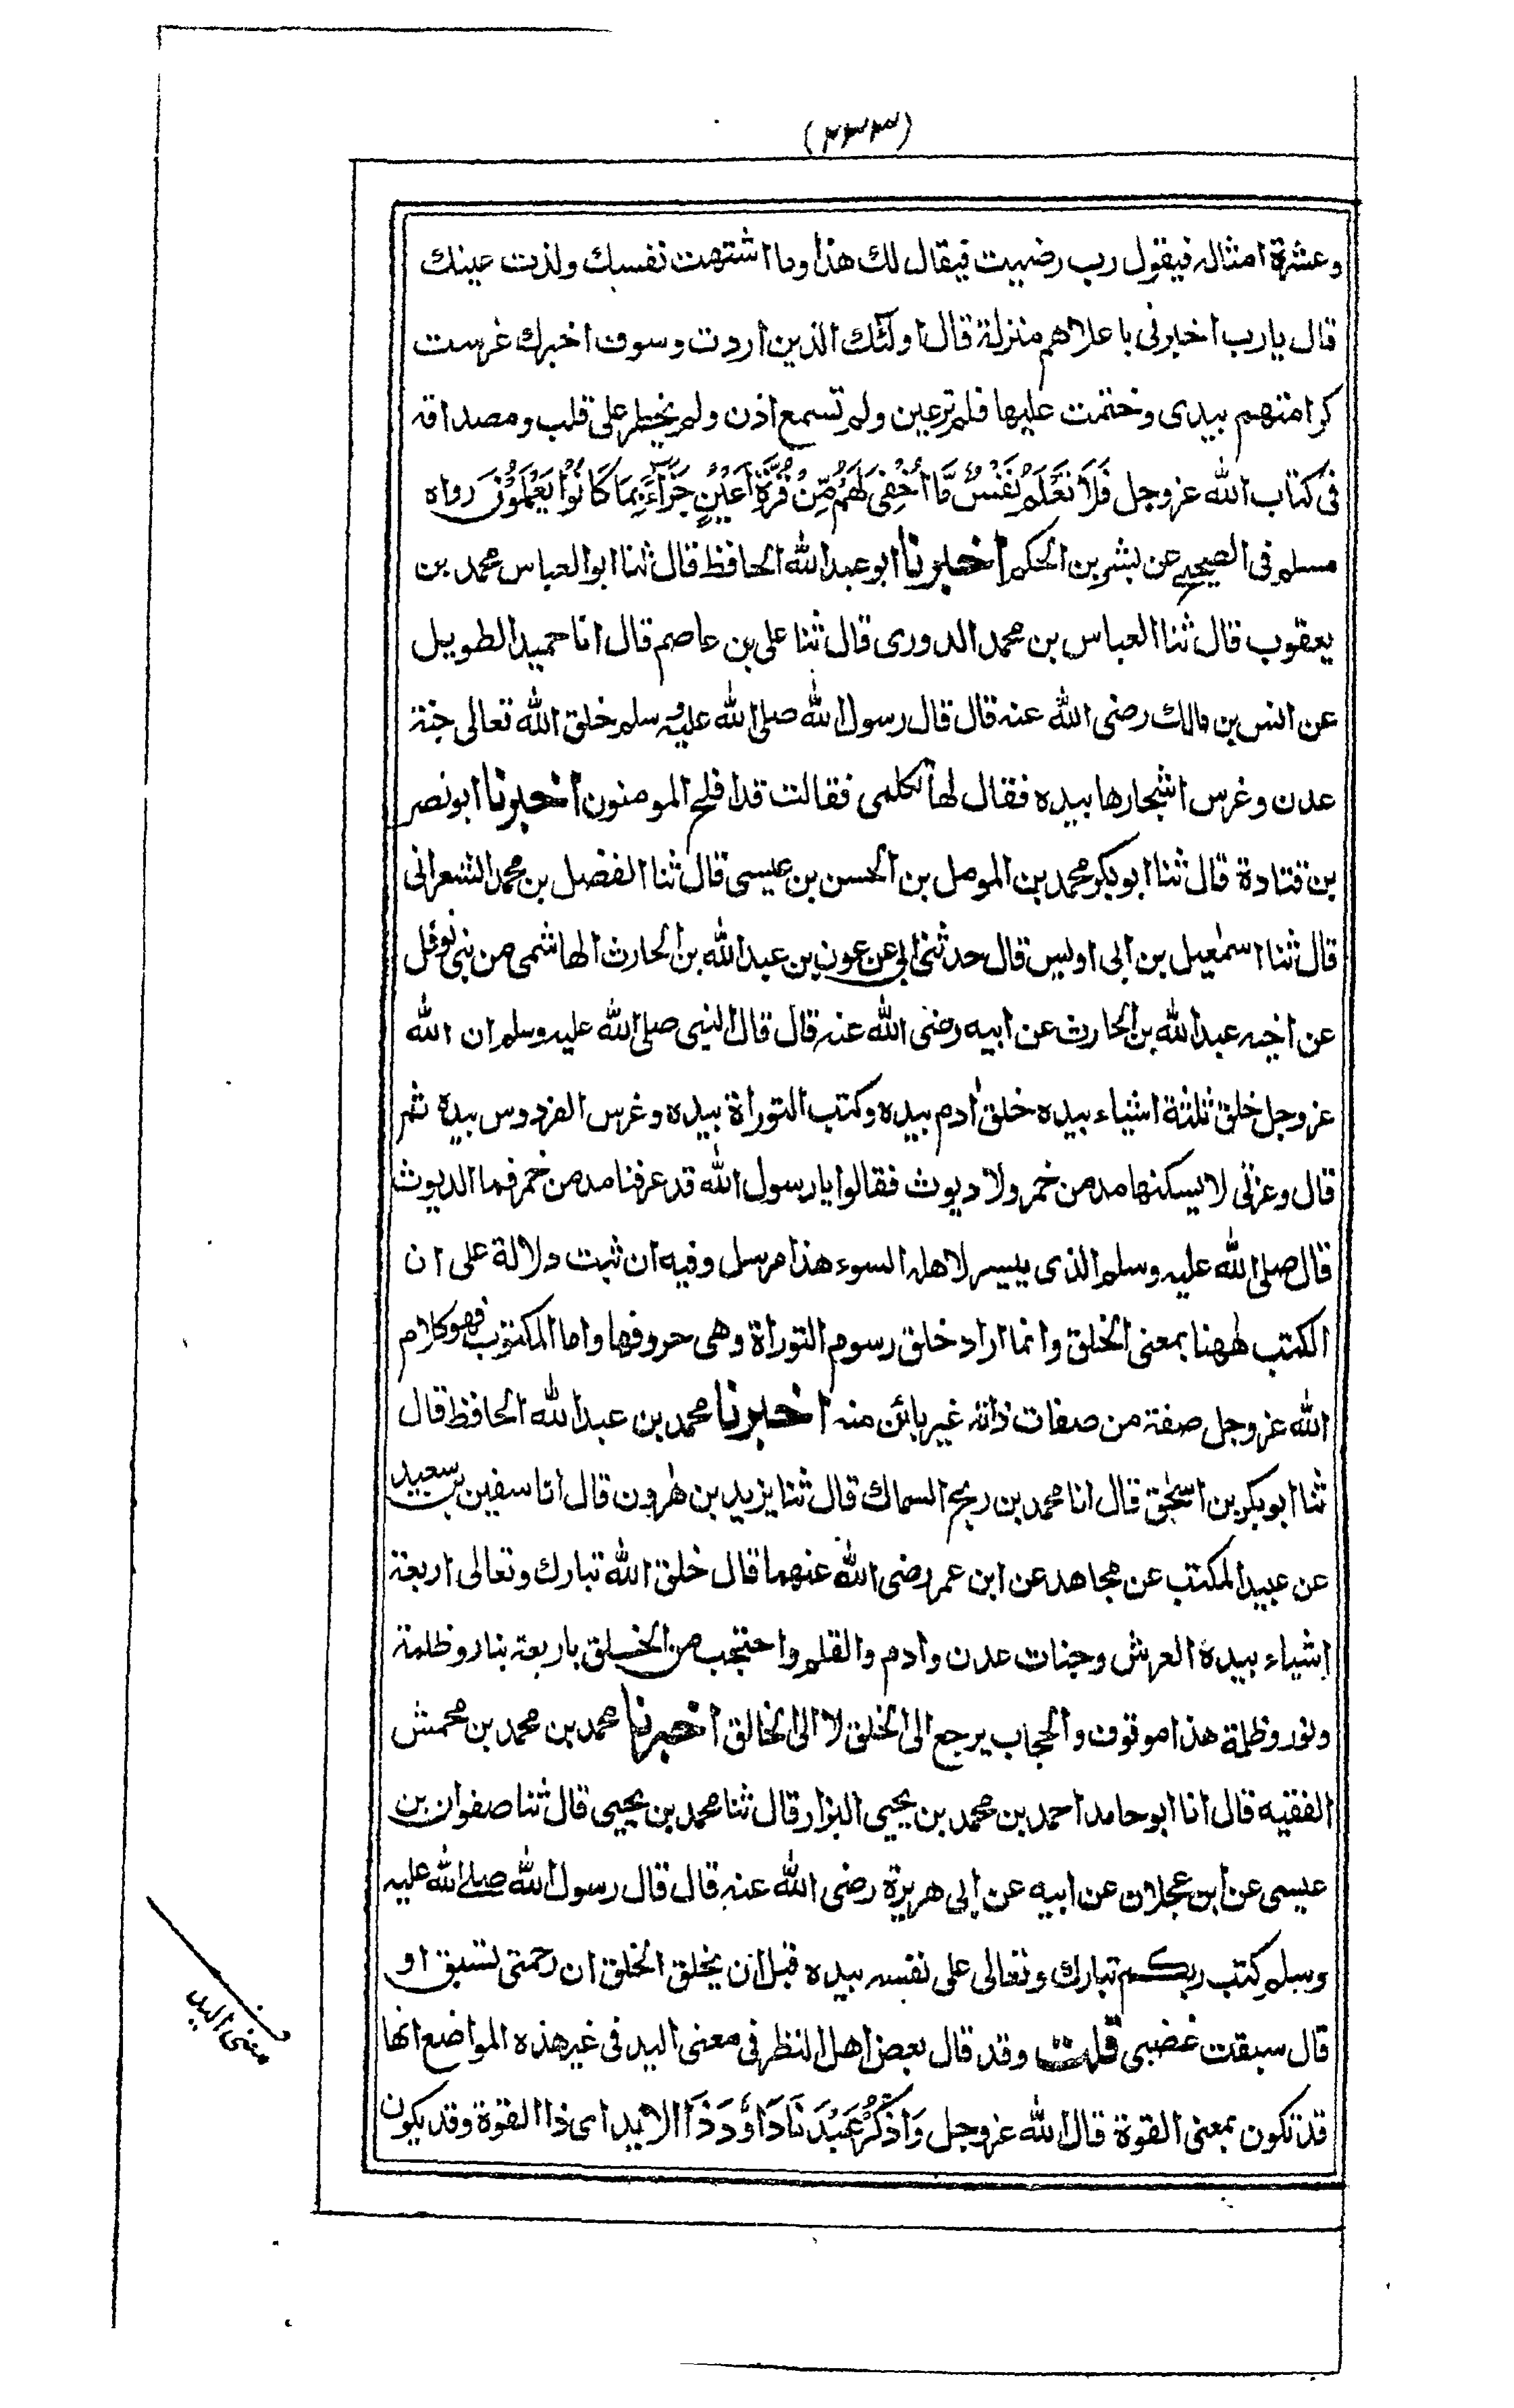 (٢٣٣)
وعشرة امثاله فيقول رب رضيت فيقال لك هذا وما اشتهت نفسك ولذت عينك
قال يارب اخبرنى باعلاهم منزلة قال اولئك الذين اردت وسوف اخبرك غرست
كرامتهم بيدى وختمت عليها فلم ترعين ولم تسمع اذن ولم يخطر على قلب ومصداقه
فى كتاب الله عزوجل فَلَا تَعْلَمُ نَفْسٌ مَّا اُخْفِىَ لَهُمْ مِّنْ قُرَّةِ اَعْيُنٍ جَزَاۤءًۢ بِمَا كَانُوْا يَعْمَلُوْنَ رواه
مسلم فى الصحيح عن بشر بن الحكم اخبرنا ابو عبد الله الحافظ قال ثنا ابو العباس محمد بن
يعقوب قال ثنا العباس بن محمد الدورى قال ثنا على بن عاصم قال انا حميد الطويل
عن انس بن مالك رضى الله عنه قال قال رسول الله صلى الله عليه وسلم خلق الله تعالى جنة
عدن وغرس اشجارها بيده فقال لها تكلمى فقالت قد افلح المومنون اخبرنا ابو نصر
بن قتادة قال ثنا ابو بكر محمد بن المومل بن الحسن بن عيسى قال ثنا الفضل بن محمد الشعرانى
قال ثنا اسمٰعيل بن ابى اويس قال حدثنى ابى عن عون بن عبد الله بن الحارث الهاشمى من بنى نوفل
عن اخيه عبد الله بن الحارث عن ابيه رضى الله عنه قال قال النبى صلى الله عليه وسلم ان الله
عزوجل خلق ثلثة اشياء بيده خلق اٰدم بيده وكتب التوراة بيده وغرس الفردوس بيده ثم
قال وعزتى لا يسكنها مدمن خمر ولا ديوث فقالوا يا رسول الله قد عرفنا مدمن خمر فما الديوث
قال صلى الله عليه وسلم الذى ييسر لاهله السوء هذا مرسل وفيه ان ثبت دلالة على ان
الكتب هٰهنا بمعنى الخلق وانما اراد خلق رسوم التوراة وهى حروفها واما المكتوب فهو كلام
الله عزوجل صفة من صفات ذاته غير بائن منه اخبرنا محمد بن عبد الله الحافظ قال
ثنا ابو بكر بن اسحٰق قال انا محمد بن ربح السماك قال ثنا يزيد بن هٰرون قال انا سفين بن سعيد
عن عبيد المكتب عن مجاهد عن ابن عمر رضى الله عنهما قال خلق الله تبارك وتعالى اربعة
اشياء بيده العرش وجنات عدن وادم والقلم واحتجب من الخلق باربعة بنار وظلمة
ونور وظلمة هذا موقوف والحجاب يرجع الى الخلق لا الى الخالق اخبرنا محمد بن محمد بن محمش
الفقيه قال انا ابو حامد احمد بن محمد بن يحيى البزار قال ثنا محمد بن يحيى قال ثنا صفوان بن
عيسى عن ابن عجلان عن ابيه عن ابى هريرة رضى الله عنه قال قال رسول الله صلى الله عليه
وسلم كتب ربكم تبارك وتعالى على نفسه بيده قبل ان يخلق الخلق ان رحمتى تسبق او
قال سبقت غضبى قلت وقد قال بعض اهل النظر فى معنى اليد فى غير هذه المواضع انها
قد تكون بمعنى القوة قال الله عزوجل وَاذْكُرْ عَبْدَنَا دَاوٗدَ ذَا الايد اى ذا القوة وقد يكون
معنى اليد